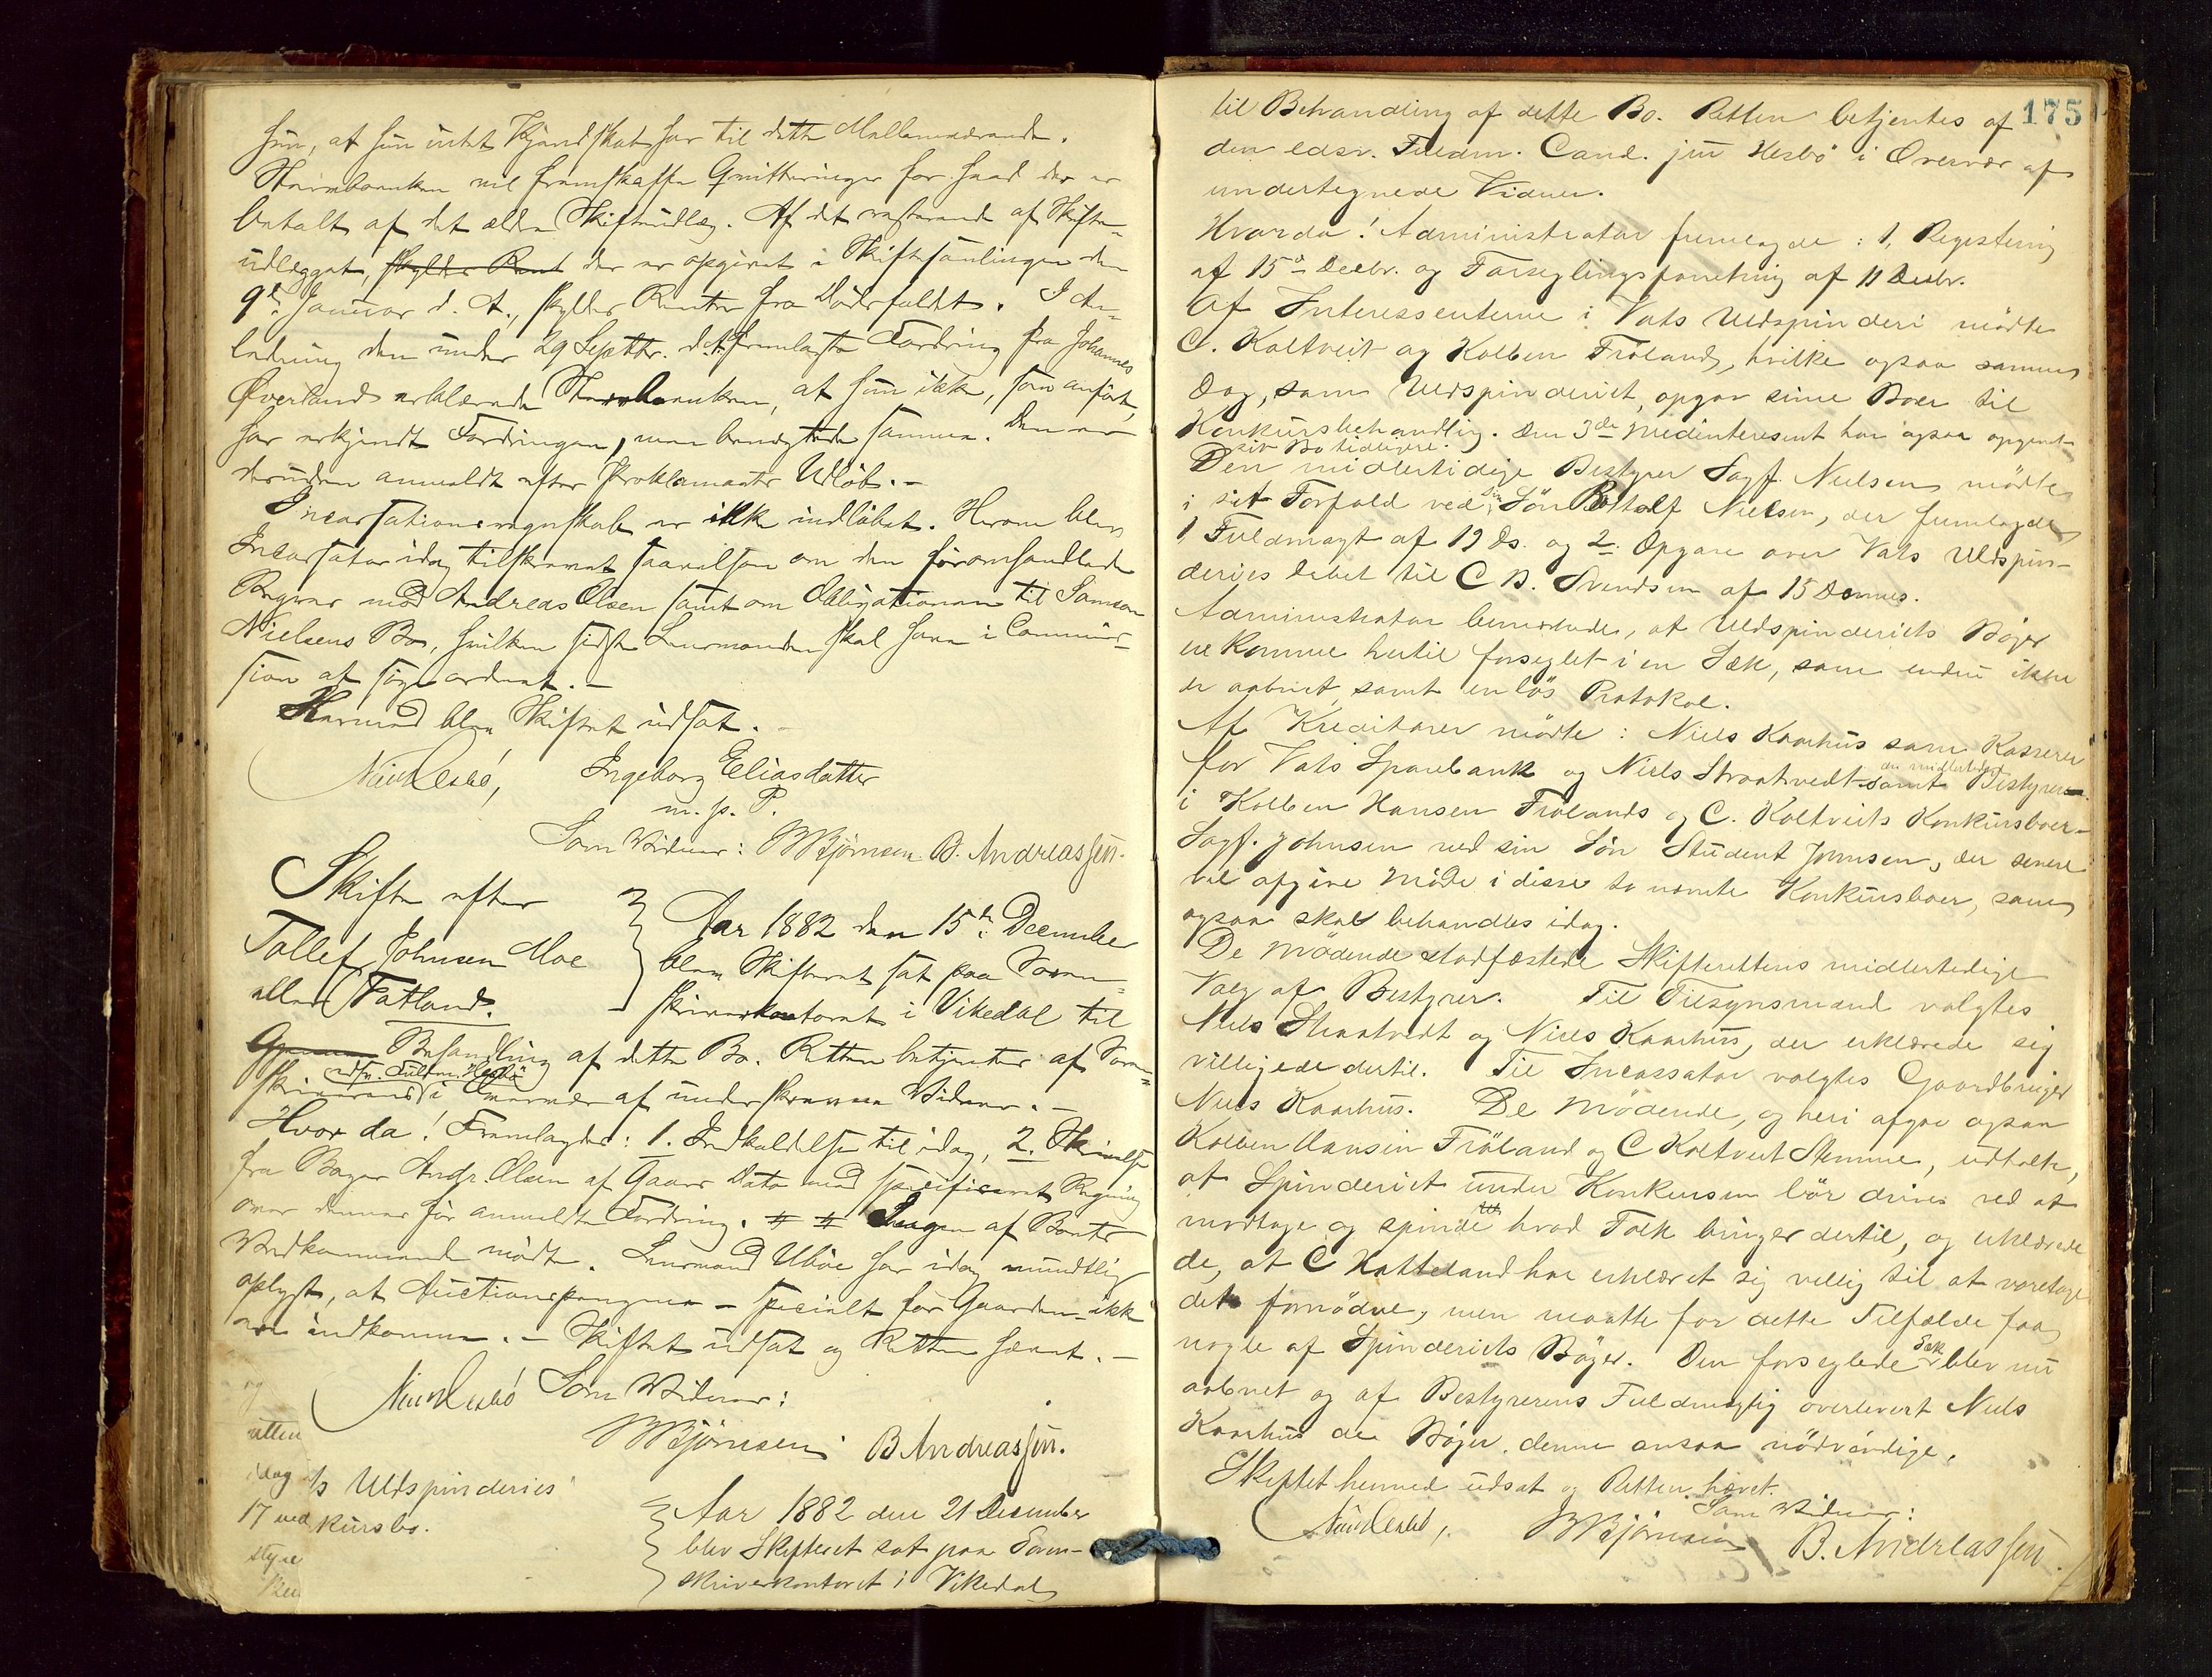 hun, at hun intet Kjendskab har til dette Mellemværende.
Stervboenken vil fremskaffe Qvitteringer for hvad der er
betalt af det ældre Skifteudlæg. Af det resterende af Skifte-
udlægget, skylder Rent der er opgivet i Skiftesamlingen den
9de Januar d. A., skyldes Renter fra Dödsfaldet. I An-
ledning den under 29 Septbr. d. A. fremlagte Fordring fra Johannes
Øverland erklærede Stervboenken, at hun ikke, som anfört,
har erkjendt Fordringen, men benegtede samme. Den er
desuden anmeldt efter Proklamaets Udlöb.-
Incassationsregnskab er ikke indlöbet. Herom blev
Incassator idag tilskrevet saavelsom om den föromhandlede
Regres mod Andreas Olsen samt om Obligationen til Samson
Nielsens Bo, hvilken sidste Lensmanden skal have i Commis-
sion at söge ordnet.-
Hermed blev Skiftet udsat.-
Ingeborg Eliasdatter
m. p. P.
Som Vidner: Bjørnsen B. Andreassen.
Skifte efter
Tollef Johnsen Moe
eller Fatland.
Aar 1882 den 15de December
blev Skifteret sat paa Soren-
skriverkontoret i Vikedal til
Behandling af dette Bo. Retten betjentes af Soren-
edsv. Fuldm. Hesbö
skriveren i Overvær af underskrevne Vidner.-
Hvor da! Fremlagdes: 1. Indkaldelse til idag, 2. Skrivelse
fra Bager Andr. Olsen af Gaars Dato med specificeret Regning
over dennes för anmeldte Fordring. Ingen af Boets
Vedkommende mödte. Lensmand Ubøe har idag mundtlig
oplyst, at Auctionspengene - specielt for Gaarden - ikke
ere indkomne.- Skiftet udsat og Retten hævet.-
Som Vidner:
Bjørnsen B Andreassen.
og
utten
idag
17 ved
styre
Uldspinderies
kursbo.
Aar 1882 den 21 December
blev Skifteret sat paa Soren-
skriverkontoret i Vikedal
175
til Behandling af dette Bo. Retten betjentes af
den edsv. Fuldm. Cand. jur Hesbö i Overvær af
undertegnede Vidner.
Hvorda! Administrator fremlagde: 1, Registering
af 15de Decbr. og Forseglingsforretning af 11 Decbr.
Af Interessenterne i Vats Uldspinderi mödte
C. Koltveit og Kolben Fröland, hvilke ogsaa samme
Dag, som Uldspinderiet, opgav sine Boer til
Konkursbehandling. Den 3de Medinteressent har ogsaa opgivet
sit Bo tidligere.
Den midlertidige Bestyrer Sagf. Nielsen mödte
i sit Forfald ved sin Sön Botolf Nielsen, der fremlagde
1 Fuldmagt af 19 ds. og 2. Opgave over Vats Uldspin-
deries Debet til C B. Svendsen af 15 Dennes.
Administrator bemærkede, at Uldspinderiets Böger
ere komne hertil forseglet i en Sæk, som endnu ikke
er aabnet, samt en lös Protokol.
Af Kreditorer mödte: Niels Kaarhus som Kasserer
for Vats Sparebank og Niels Straatvedt samt den midlertidige Bestyrer
i Kolben Hansen Frölands og C. Koltveits Konkursboer-
Sagf. Johnsen ved sin Sön Student Johnsen, der senere
vil afgive Möde i disse to nævnte Konkursboer, som
ogsaa skal behandles idag.
De Mödende stadfæstede Skifterettens midlertidige
Valg af Bestyrer. Til Tilsynsmænd valgtes
Niels Straatvedt og Niels Kaarhus, der erklærede sig
villige dertil. Til Incassator valgtes Gaardbruger
Niels Kaarhus. De Mödende, og heri afgav ogsaa
Kolben Hansen Fröland og C Koltveit Stemme, udtalte,
at Spinderiet under Konkursen bör drives ved at
modtage og spinde hvad Folk bringer dertil, og erklærede
de, at C Hatteland har erklæret sig villig til at varetage
det fornödne, men maatte for dette Tilfælde faa
nogle af Spinderiets Böger. Den forseglede Sæk blev nu
aabnet og af Bestyrerens Fuldmægtig overlevert Niels
Kaarhus de Böger, denne ansaa nödvendige.
Skiftet hermed udsat og Retten hævet.
Som Vidner:
Bjørnsen B. Andreassen.